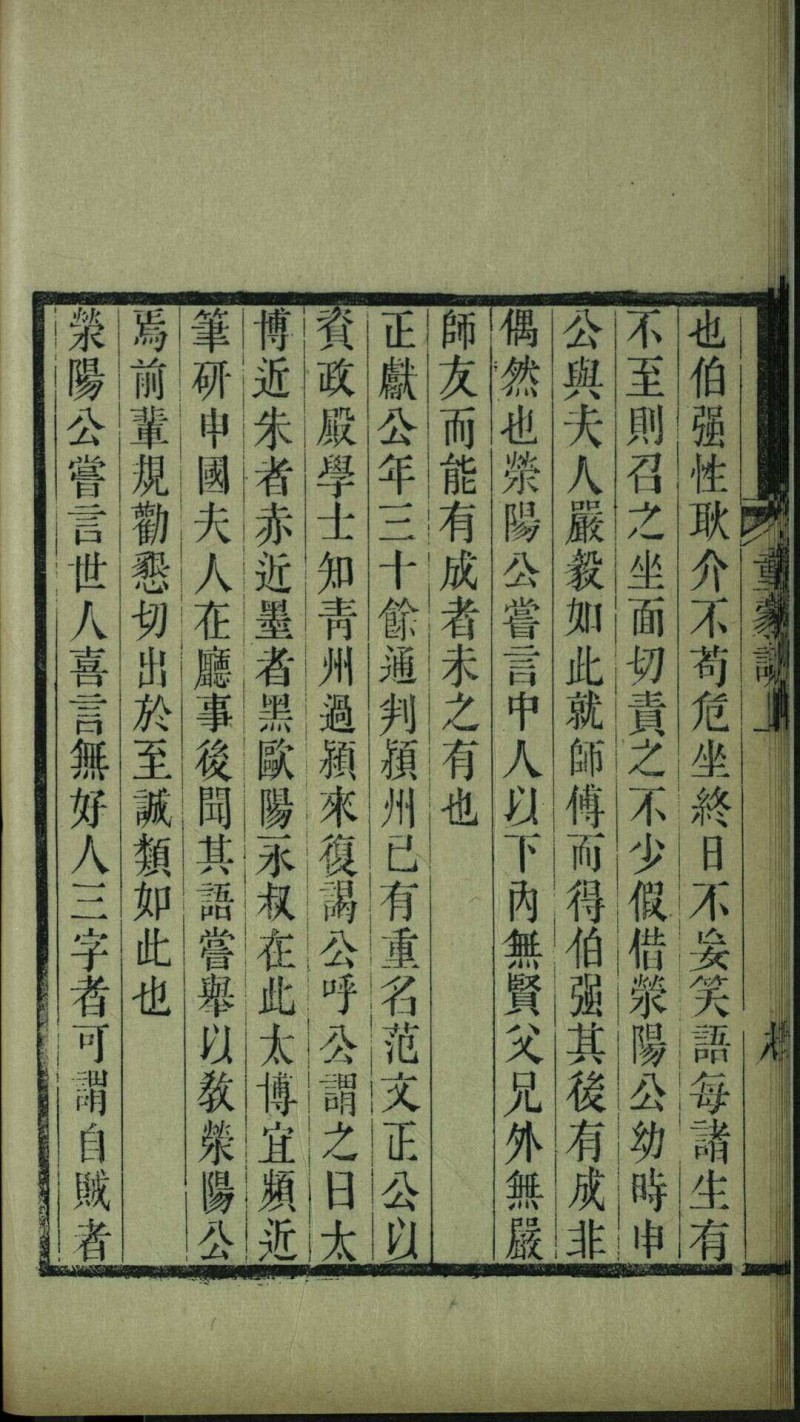 童蒙訓上
也伯强性耿介不苟危坐終日不妄笑語每諸生有
不至則召之坐面切責之不少假借滎陽公幼時申
公與夫人嚴毅如此就師傅而得伯强其後有成非
偶然也滎陽公嘗言中人以下內無賢父兄外無嚴
師友而能有成者未之有也
正獻公年三十餘通判潁州已有重名范文正公以
資政殿學士知青州過潁來復謁公呼公謂之曰太
博近朱者赤近墨者黑歐陽永叔在此太博宜頻近
筆硏申國夫人在廳事後聞其語嘗舉以教滎陽公
焉前輩規勸懇切出於至誠類如此也
滎陽公嘗言世人喜言無好人三字者可謂自賊者